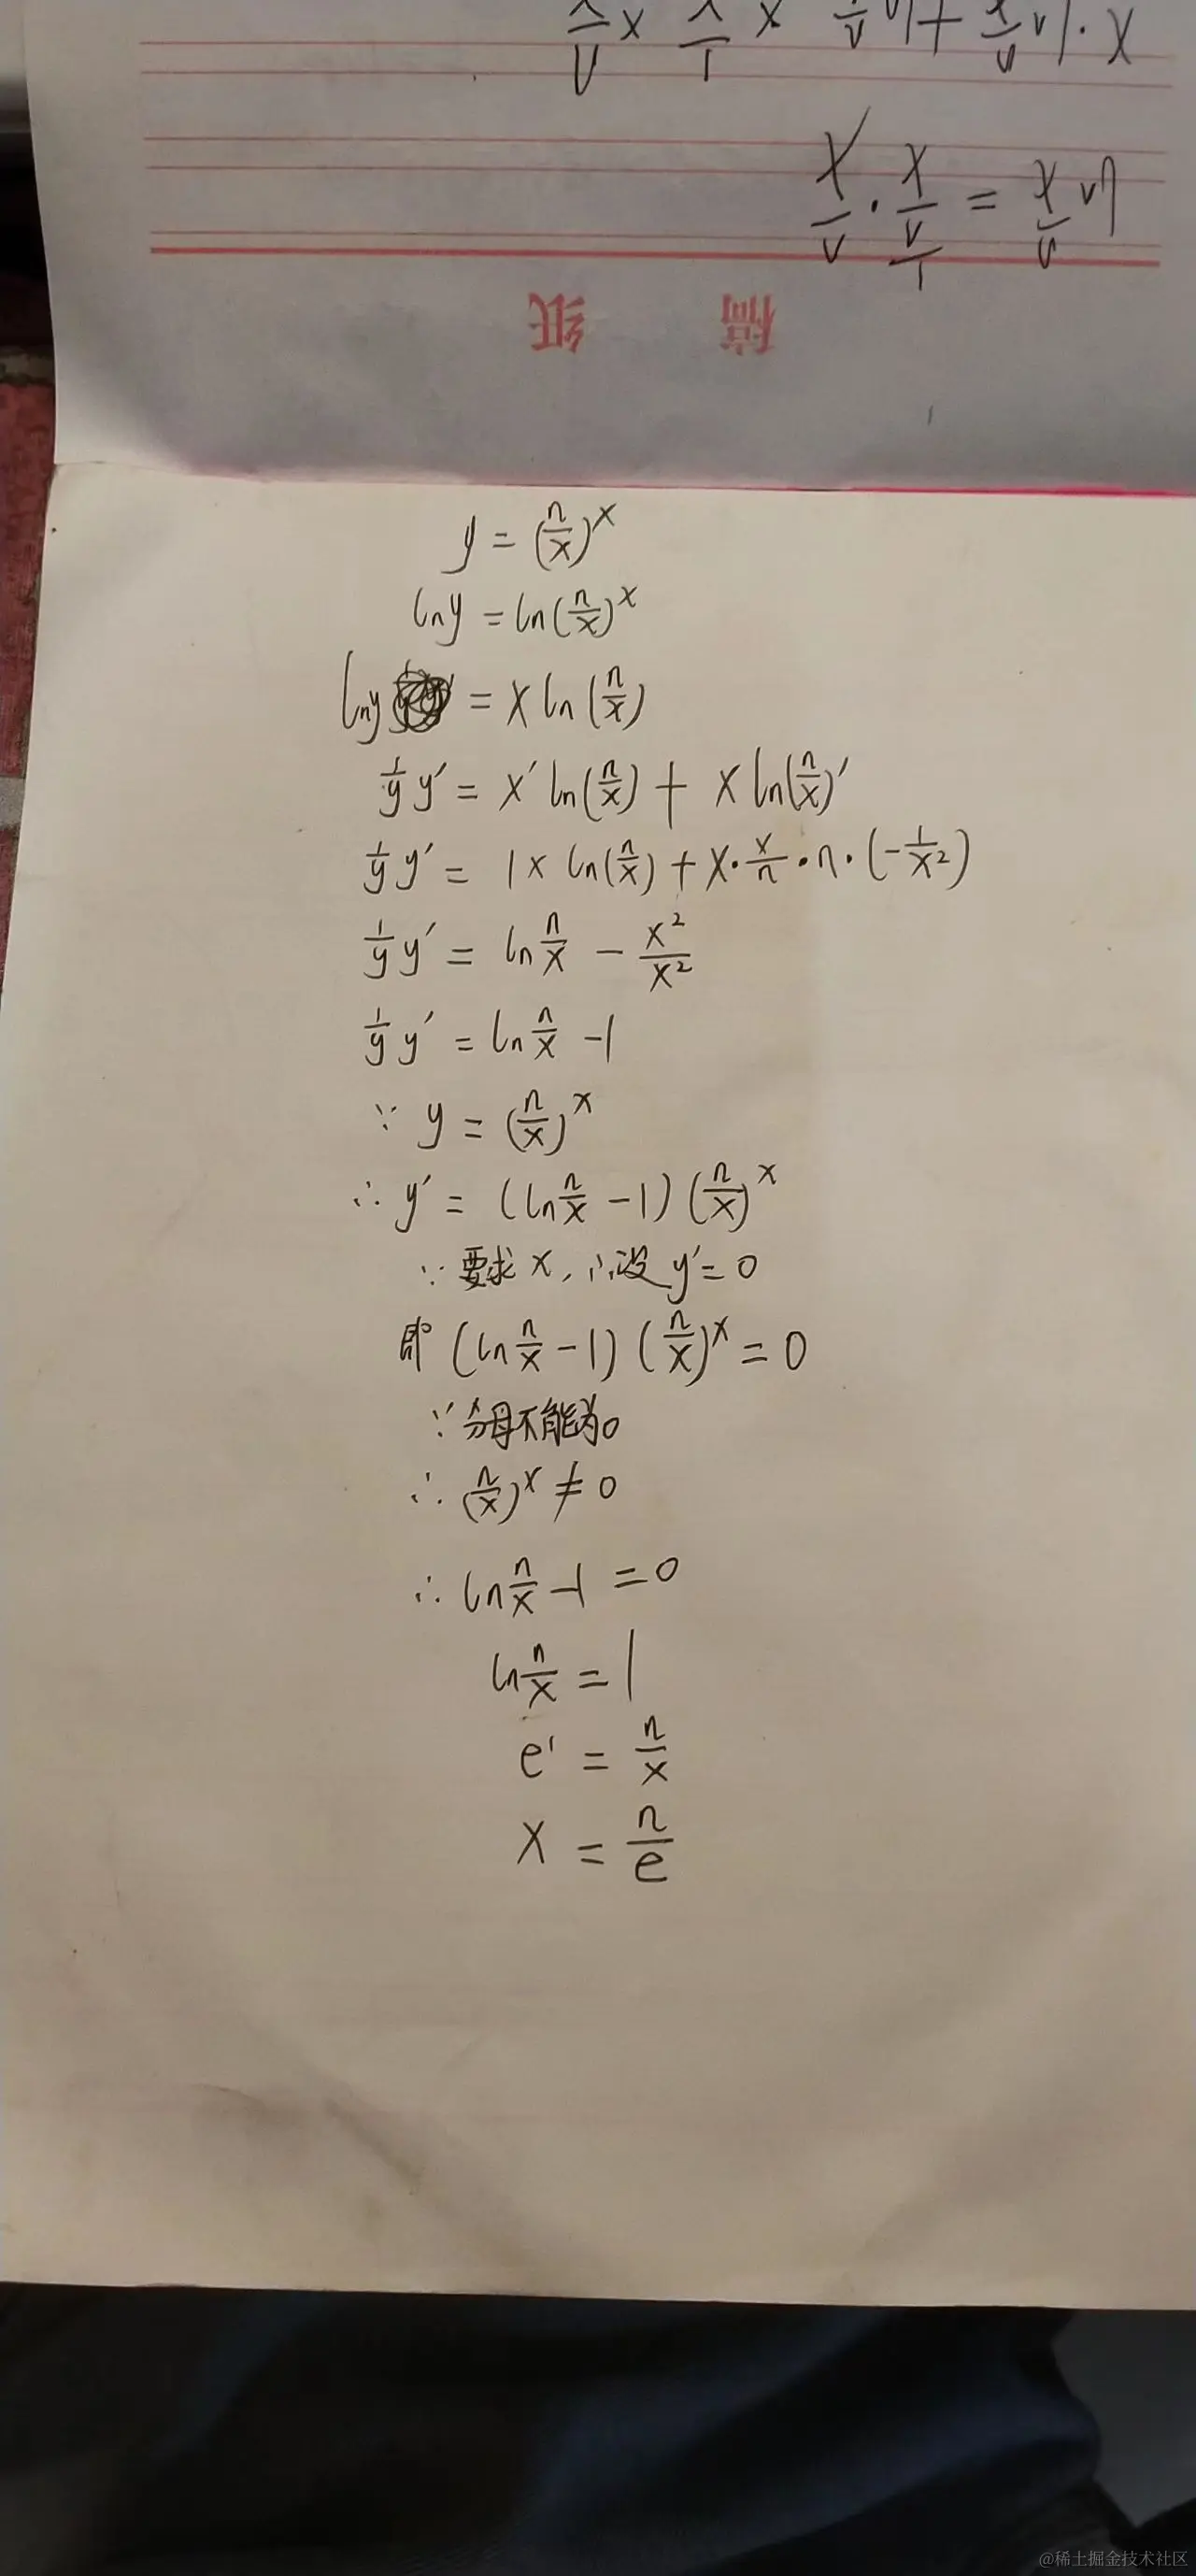 x/v · x/v/1 = x/v v)
稿 纸
y = (n/x)^x
lny = ln(n/x)^x
lny = x ln(n/x)
1/y y′ = x′ ln(n/x) + x ln(n/x)′
1/y y′ = 1× ln(n/x) + x · x/n · n · (-1/x²)
1/y y′ = ln n/x - x²/x²
1/y y′ = ln n/x - 1
∵ y = (n/x)^x
∴ y′ = (ln n/x - 1) (n/x)^x
∵ 要求 x, ∴设 y′ = 0
即 (ln n/x - 1) (n/x)^x = 0
∵ 分母不能为0
∴ (n/x)^x ≠ 0
∴ ln n/x - 1 = 0
ln n/x = 1
e¹ = n/x
x = n/e
@稀土掘金技术社区